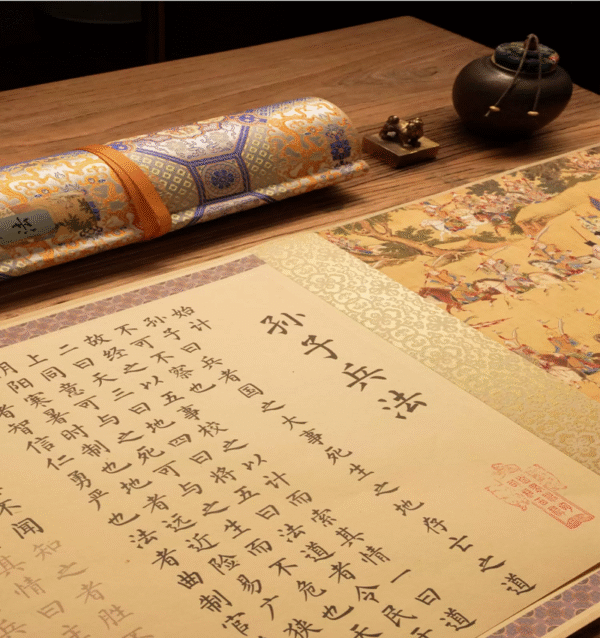 孙子兵法
始计
孙子曰兵者国之大事死生之地存亡之道
不可不察也
故经之以五事校之以计而索其情一曰道
二曰天三曰地四曰将五曰法道者令民
上同意可与之死可与之生而不危也天
阳寒暑时制也地者远近险易广狭
者智信仁勇严也法者曲制官
不闻
知之者胜不
其情曰主